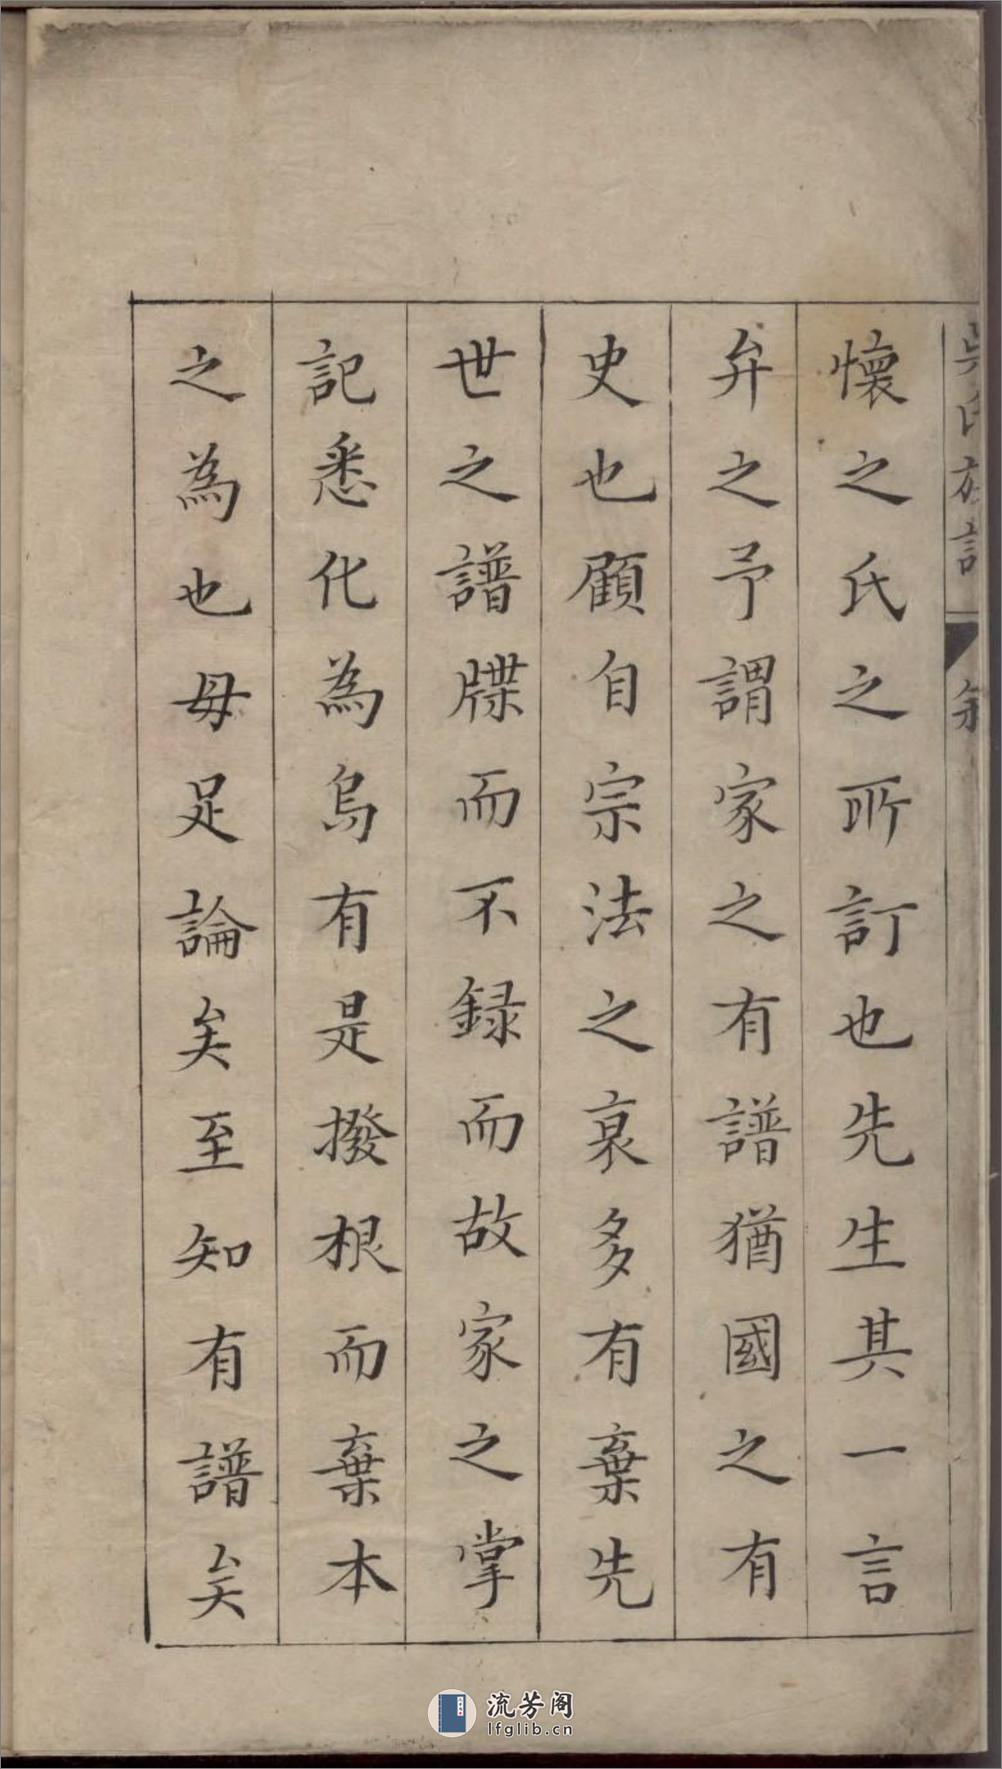 吳氏族譜 叙
懷之氏之所訂也先生其一言
弁之予謂家之有譜猶國之有
史也顧自宗法之衰多有棄先
世之譜牒而不録而故家之掌
記悉化為烏有是撥根而棄本
之為也毋足論矣至知有譜矣
流芳阁
lfglib.cn